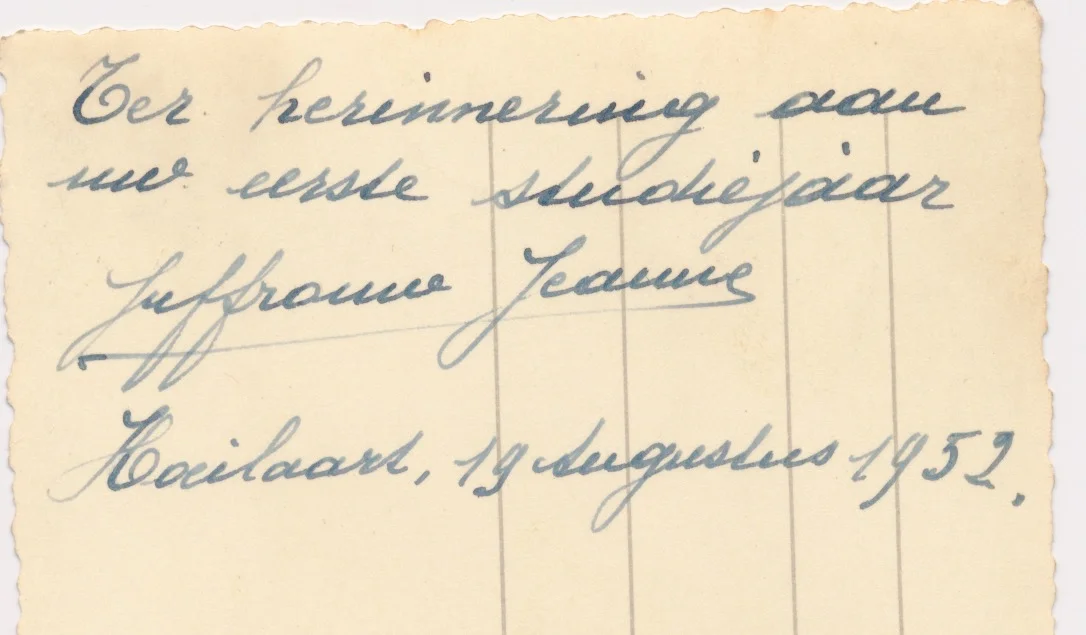 Ter herinnering aan
uw eerste studiejaar
Juffrouw Jeanne
Hoeilaart, 19 Augustus 1952.